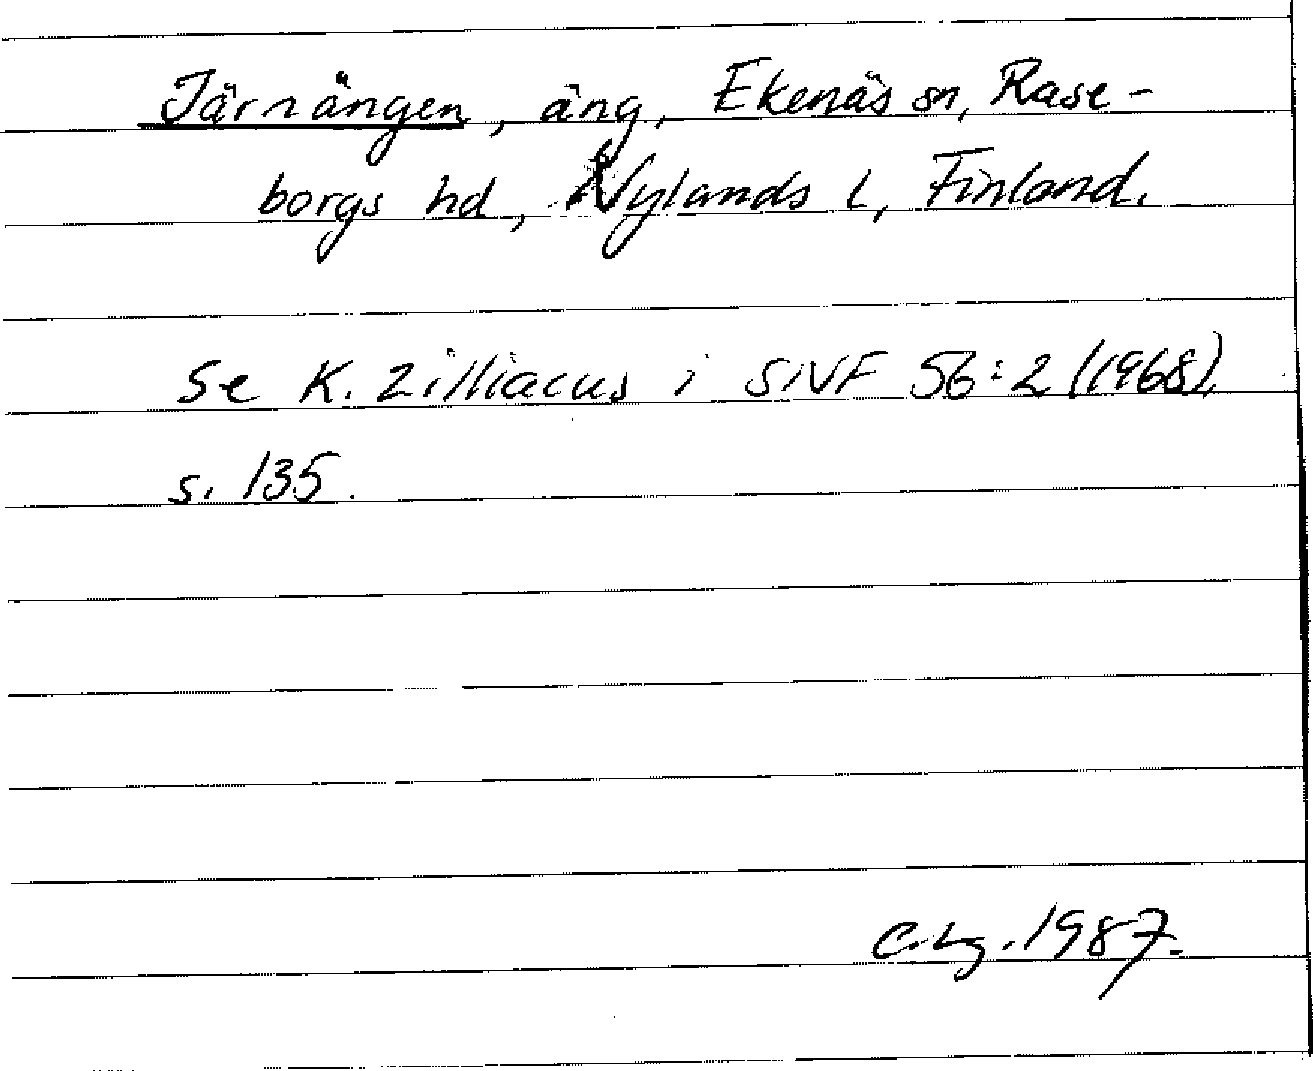 Järnängen, äng, Ekenäs sn, Rase-
borgs hd, Nylands l, Finland.
Se K. Zilliacus i SNF 56:2 (1968),
s. 135.
C.Lg. 1987.